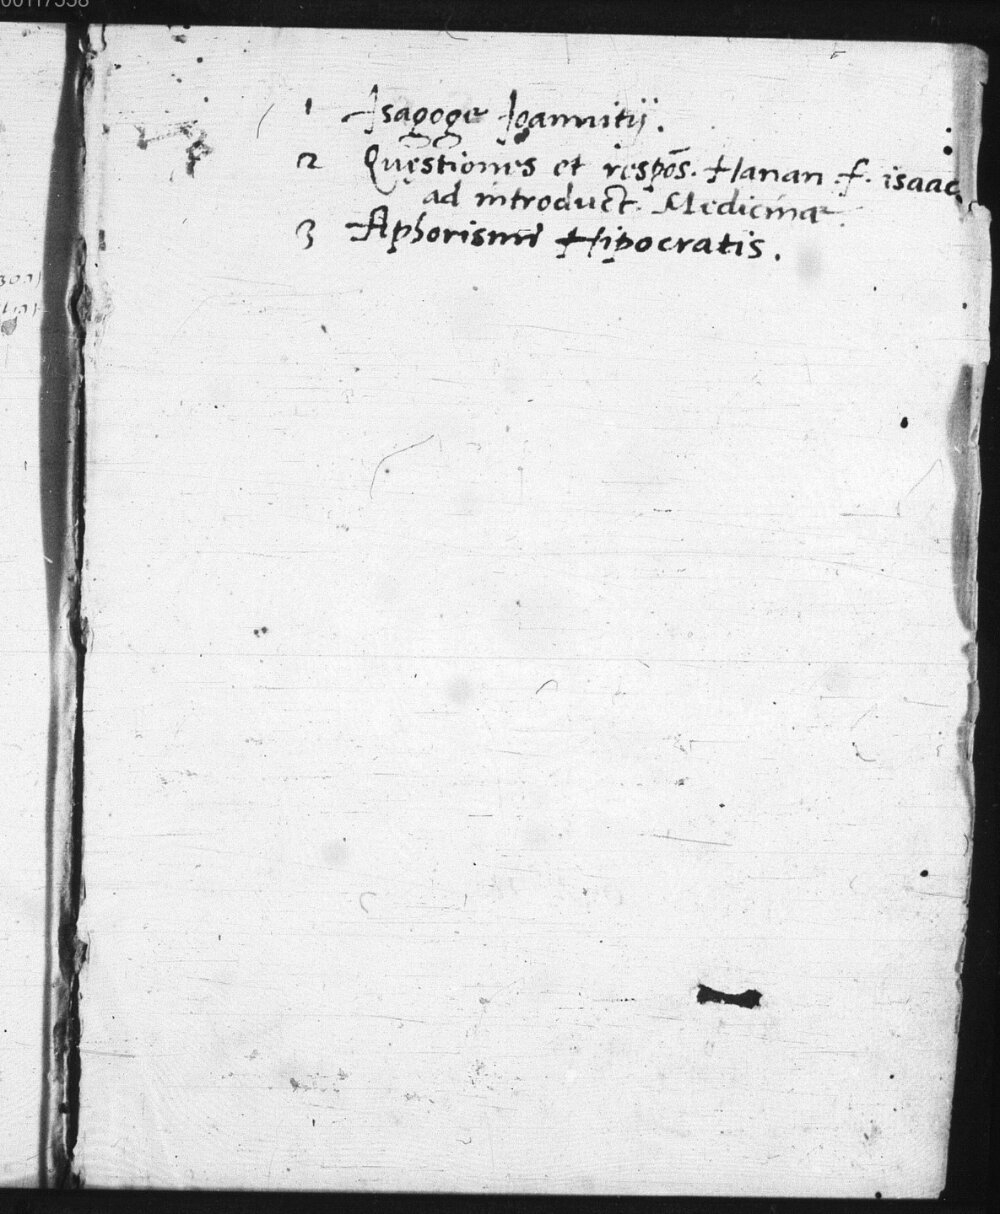 1 Isagoge Joannitij.
2 Quęstiones et respõs. Hanan .f. isaac
ad introduct. Medicinæ
3 Aphorismi Hipocratis.